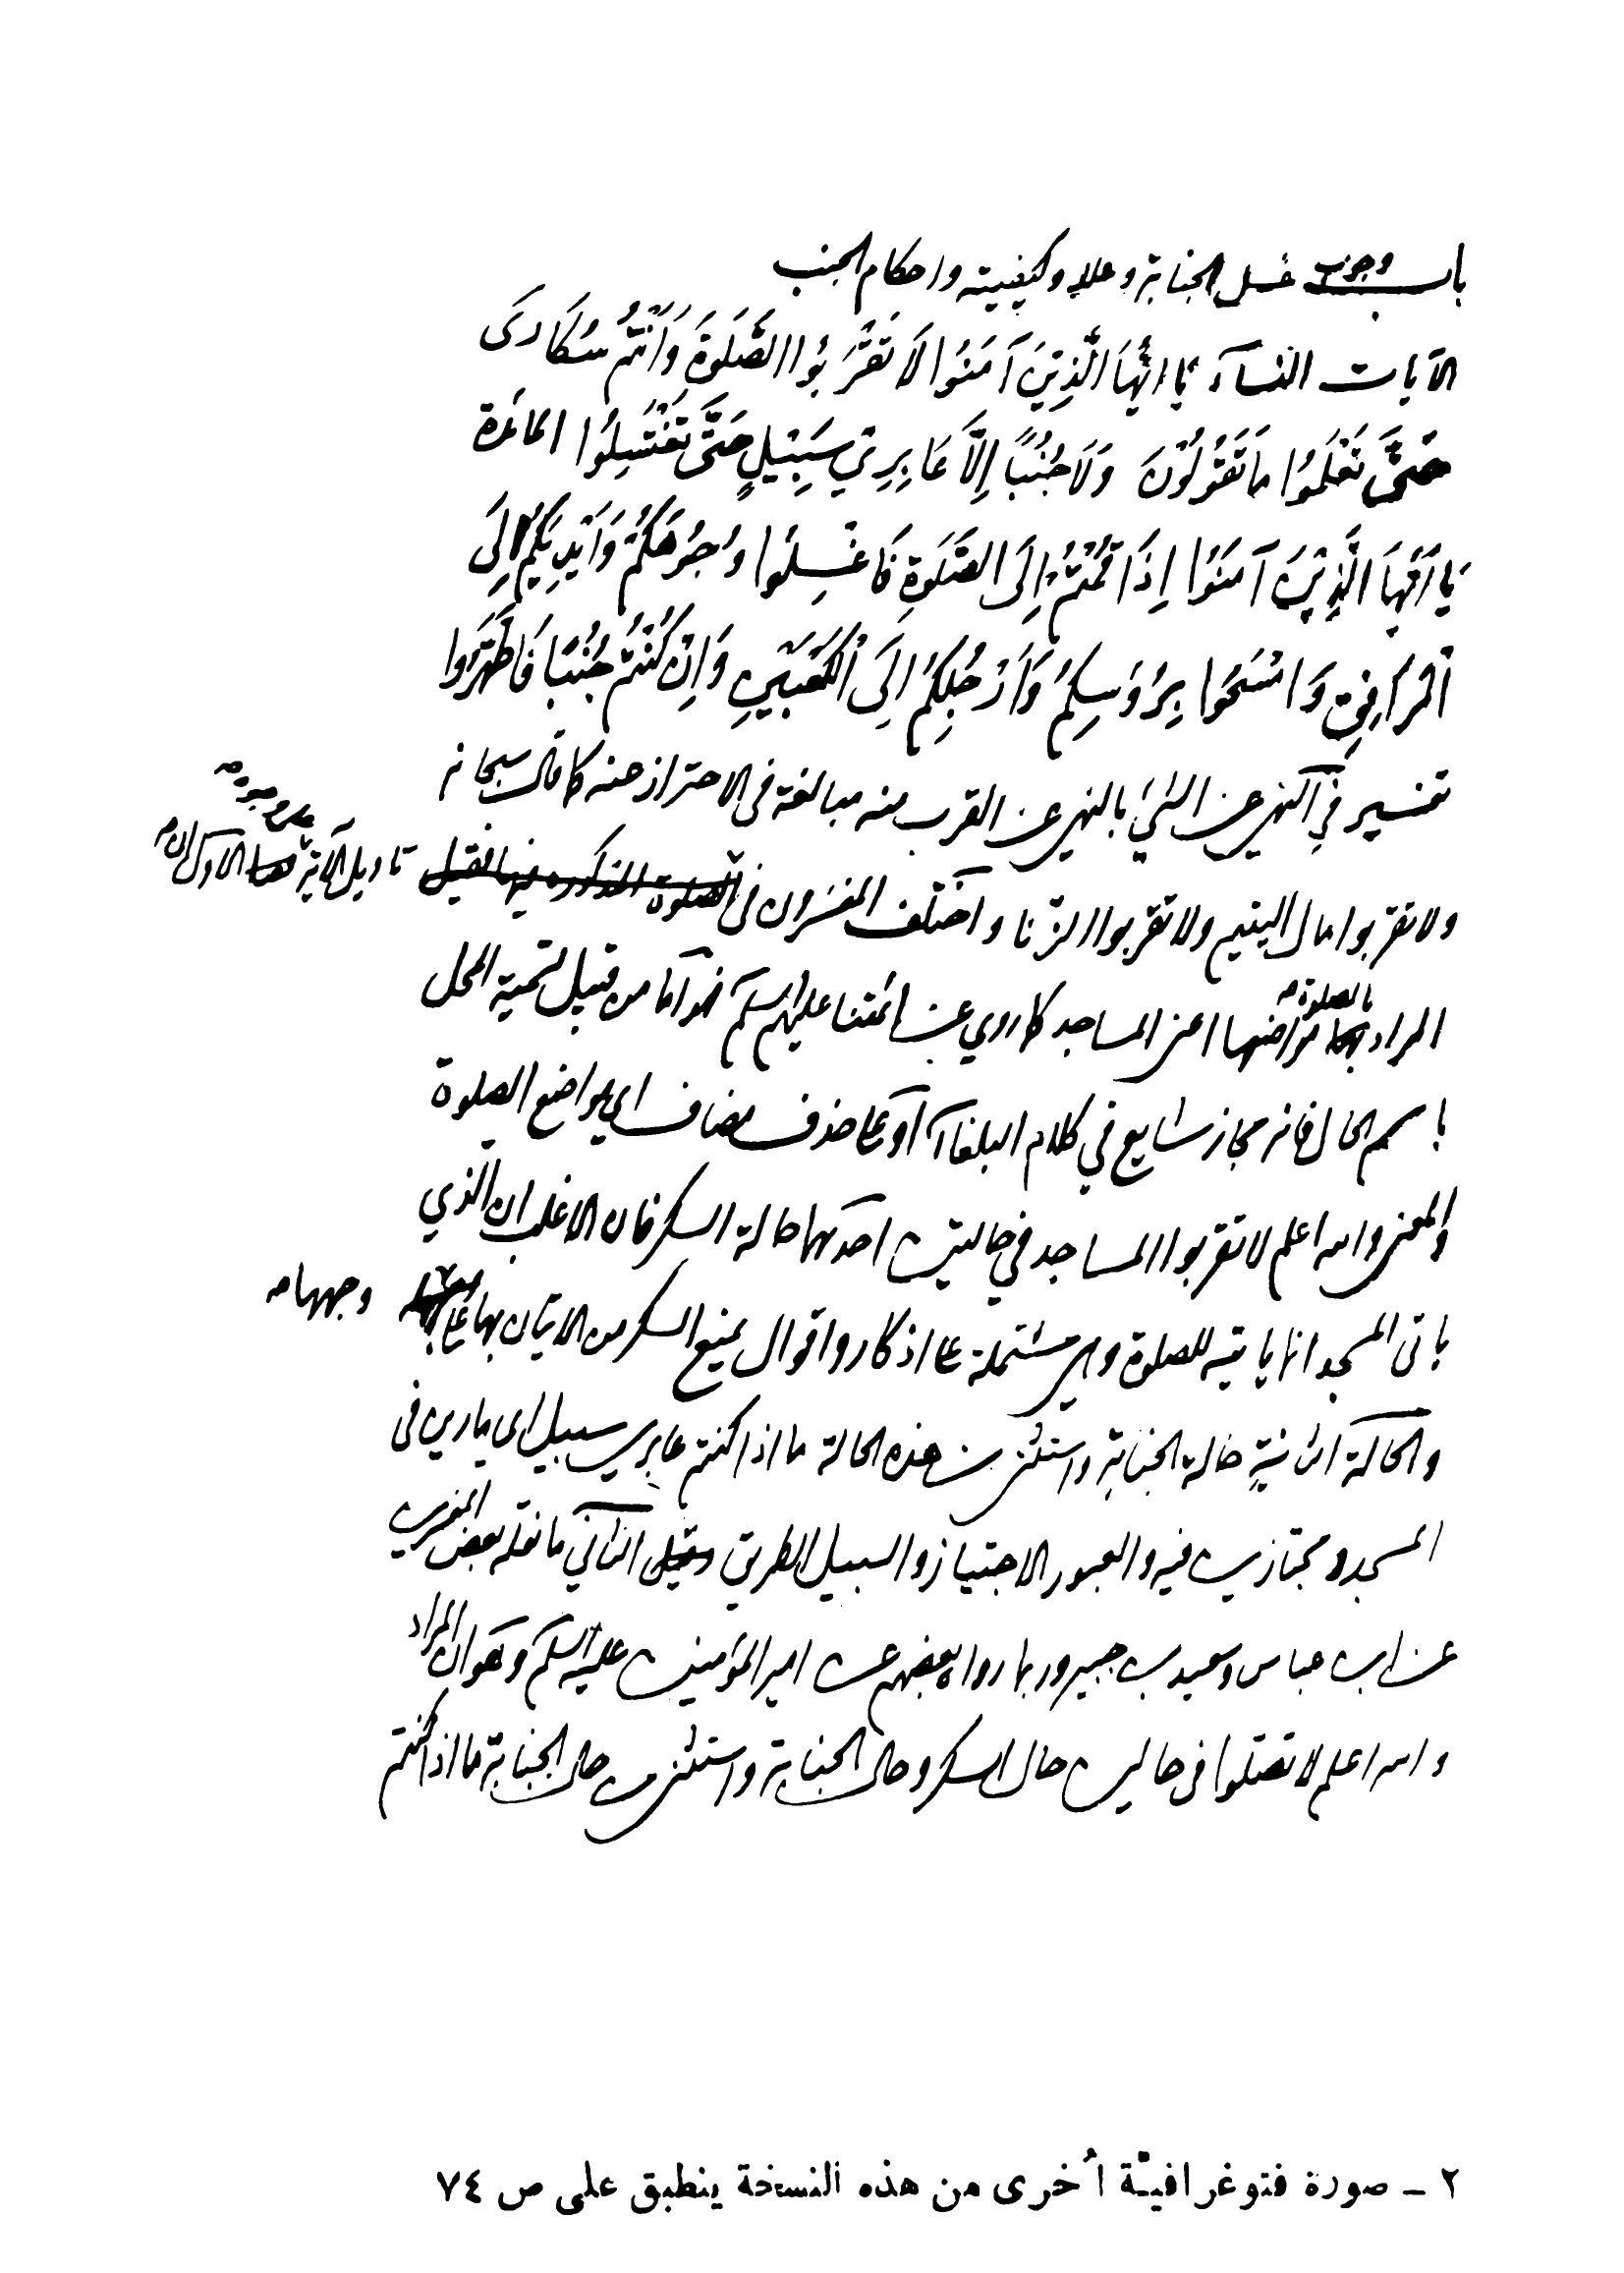 باب وجوب غسل الجنابة وعلله وكيفيته واحكام الجنب
الآيات النسآء يَا اَيُّهَا الَّذِيْنَ آمَنُوا لَا تَقْرَبُوا الصَّلَوةَ وَاَنْتُمْ سُكَارَى
حَتَّى تَعْلَمُوا مَا تَقُولُوْنَ وَلَا جُنُبًا اِلَّا عَابِرِيْ سَبِيْلٍ حَتَّى تَغْتَسِلُوا المائدة
يَا اَيُّهَا الَّذِيْنَ آمَنُوا اِذَا قُمْتُمْ اِلَى الصَّلَوةِ فَاغْسِلُوا وُجُوهَكُمْ وَاَيْدِيَكُمْ اِلَى
الْمَرَافِقِ وَامْسَحُوا بِرُؤُسِكُمْ وَاَرْجُلِكُمْ اِلَى الْكَعْبَيْنِ وَاِنْ كُنْتُمْ جُنُبًا فَاطَّهَّرُوا
تفسير في النهي عن الشيء بالنهي عن القرب منه مبالغة في الاحتراز عنه كما قال سبحانه
ولا تقربوا مال اليتيم ولا تقربوا الزنا واختلف المفسرون في الصلوة المذكورة فيها فقيل تاويل الآية على وجوه الاول ان
المراد بالصلوة مواضعها اعني المساجد كما روي عن ائمتنا عليهم السلم فهو اما من قبيل تسمية المحل
باسم الحال فانه مجاز شايع في كلام البلغاء او على حذف مضاف اي مواضع الصلوة
والمعنى والله اعلم لا تقربوا المساجد في حالتين احدهما حالة السكر فان الاغلب ان الذي
ياتى المسجد انما ياتيه للصلوة وهي مشتملة على اذكار واقوال يمنع السكر من الاتيان بها على وجهها
والحالة الثانية حالة الجنابة واستثنى من هذه الحالة ما اذا كنتم عابري سبيل اى مارين في
المسجد ومجتازين فيه والعبور الاجتياز والسبيل الطريق وقيل الثاني ما نقله بعض المفسرين
عن ابن عباس وسعيد بن جبير وربما رواه بعضهم عن امير المؤمنين عليه السلم وهو ان المراد
والله اعلم لا تصلوا في حالين حال السكر وحال الجنابة واستثنى من حال الجنابة ما اذا كنتم
٢ ـ صورة فتوغرافيّة اُخرى من هذه النسخة ينطبق على ص ٧٤